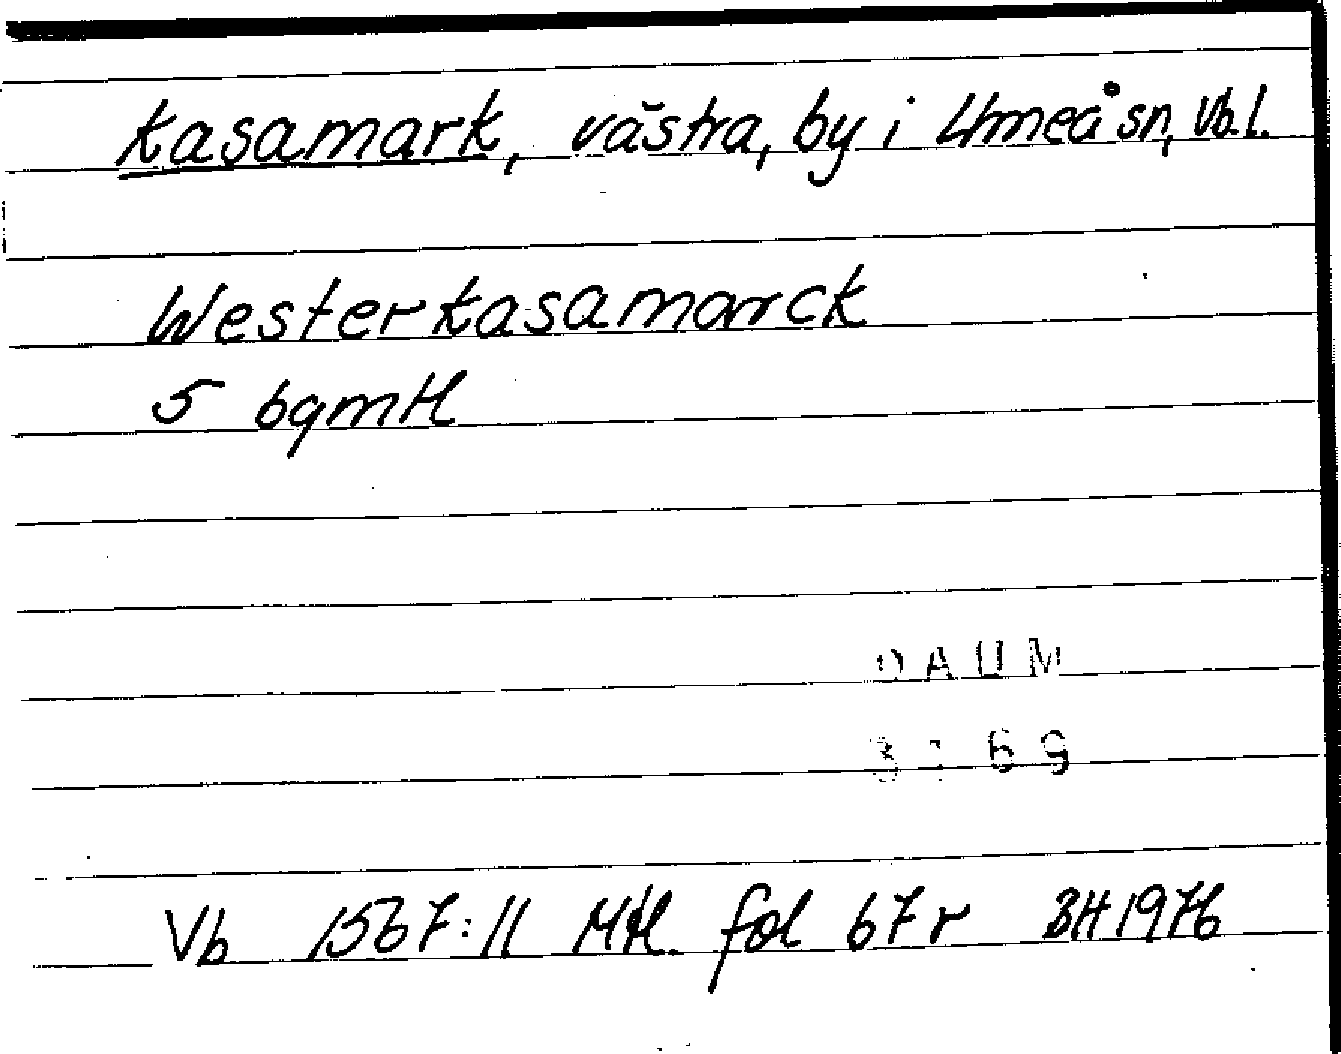 Kasamark, västra, by i Umeå sn, Vb. l.
Westerkasamarck
5 bgmtl
DAUM
69
Vb 1567:11 Mtl. fol 67 r BH 1976